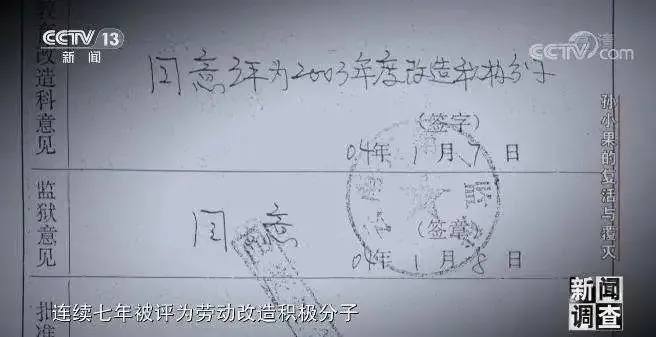 CCTV 13
新闻
CCTV.com
高清
改造科意见
同意评为2003年度改造积极分子
(签字)
04年1月7日
监狱意见
同意
(签章)
04年1月8日
批准
孙小果的复活与覆灭
连续七年被评为劳动改造积极分子
新闻
调查